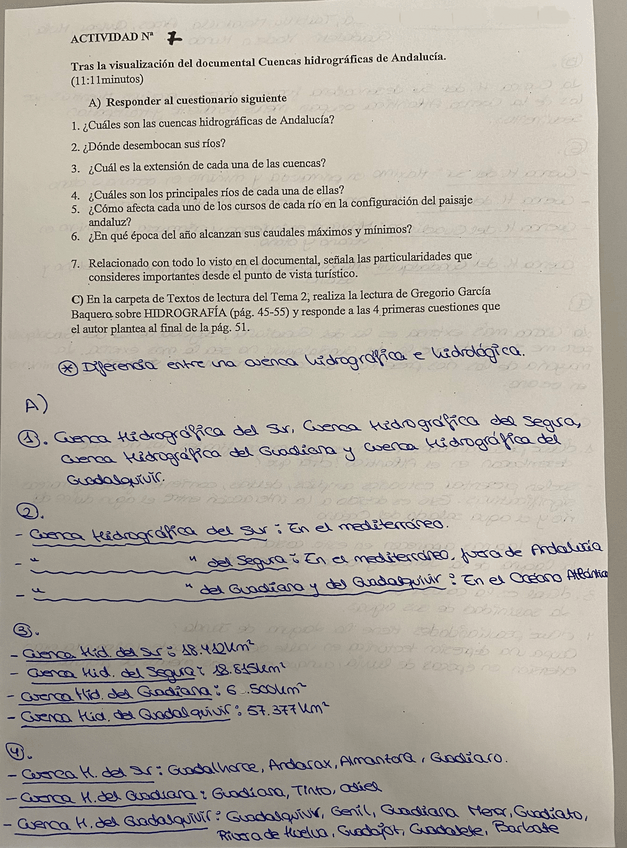 ACTIVIDAD Nª 7
Tras la visualización del documental Cuencas hidrográficas de Andalucía.
(11:11minutos)
A) Responder al cuestionario siguiente
1. ¿Cuáles son las cuencas hidrográficas de Andalucía?
2. ¿Dónde desembocan sus ríos?
3. ¿Cuál es la extensión de cada una de las cuencas?
4. ¿Cuáles son los principales ríos de cada una de ellas?
5. ¿Cómo afecta cada uno de los cursos de cada río en la configuración del paisaje
andaluz?
6. ¿En qué época del año alcanzan sus caudales máximos y mínimos?
7. Relacionado con todo lo visto en el documental, señala las particularidades que
consideres importantes desde el punto de vista turístico.
C) En la carpeta de Textos de lectura del Tema 2, realiza la lectura de Gregorio García
Baquero sobre HIDROGRAFÍA (pág. 45-55) y responde a las 4 primeras cuestiones que
el autor plantea al final de la pág. 51.
* Diferencia entre una cuenca hidrográfica e hidrológica.
A)
1. Cuenca Hidrográfica del Sur, Cuenca Hidrográfica del Segura,
Cuenca Hidrográfica del Guadiana y Cuenca Hidrográfica del
Guadalquivir.
2.
- Cuenca Hidrográfica del Sur: En el mediterráneo.
- " " del Segura: En el mediterráneo, fuera de Andalucía
- " " del Guadiana y del Guadalquivir: En el Océano Atlántico
3.
- Cuenca Hid. del Sur: 18.412km²
- Cuenca Hid. del Segura: 18.815km²
- Cuenca Hid. del Guadiana: 6.500km²
- Cuenca Hid. del Guadalquivir: 57.377km²
4.
- Cuenca H. del Sur: Guadalhorce, Andarax, Almanzora, Guadiaro.
- Cuenca H. del Guadiana: Guadiana, Tinto, Odiel
- Cuenca H. del Guadalquivir: Guadalquivir, Genil, Guadiana Menor, Guadiato,
Rivera de Huelva, Guadajoz, Guadalete, Barbate